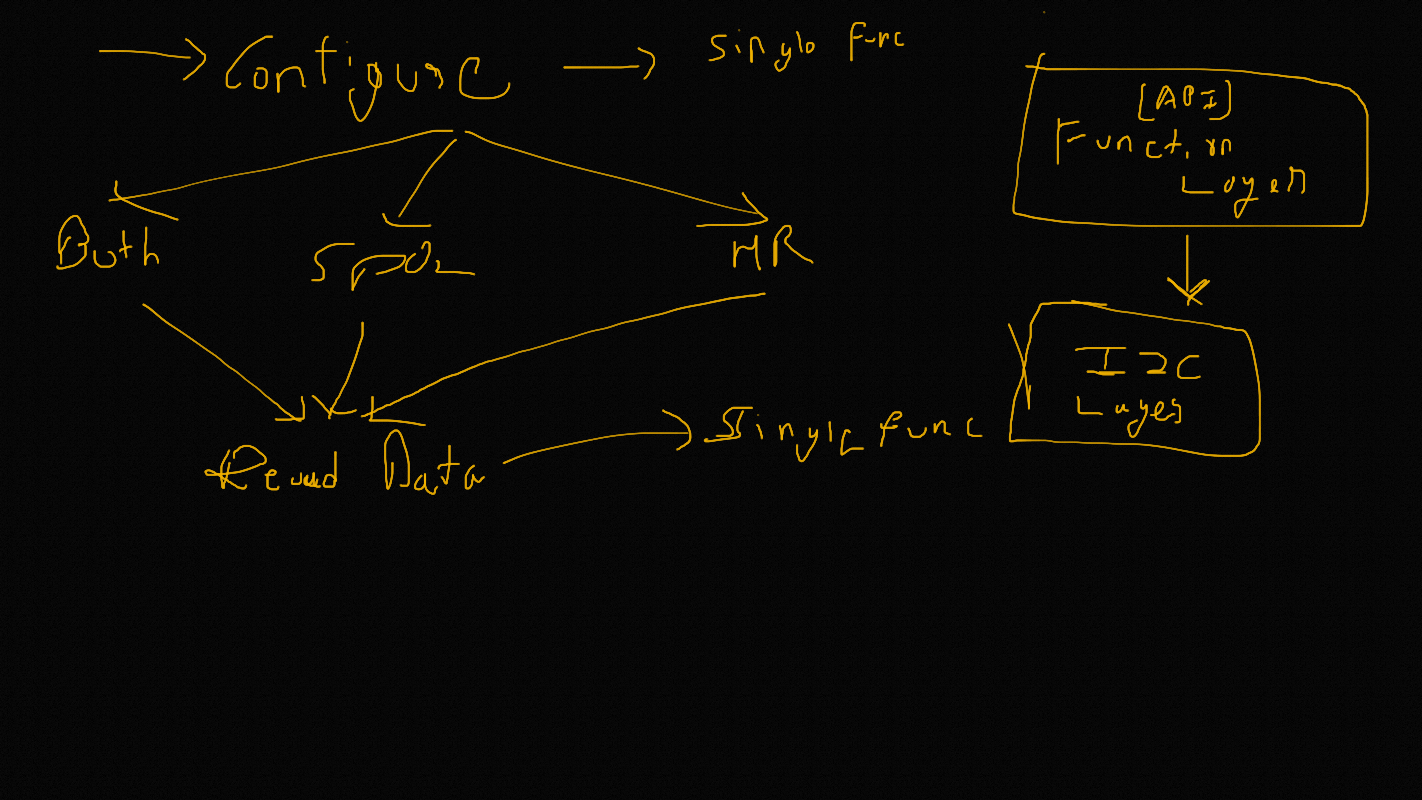 Configure
Single Func
Both
SpO2
HR
Read Data
Single func
[API]
Function
Layer
I2C
Layer